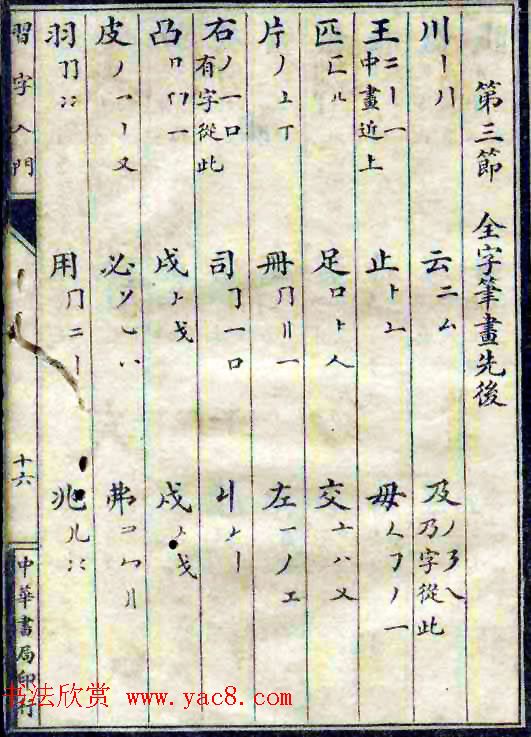 第三節 全字筆畫先後
川 丨丿丨 云 二厶 及 丿㇋㇏ 乃字從此
王 二丨一 中畫近上 止 ⺊丄 毋 𠃊㇆丿一
匹 匚儿 足 口⺊人 交 亠八乂
片 丿丄丅 冊 冂〢一 左 一丿工
右 丿一口 有字從此 司 ㇆一口 丩
凸 一 戍 戊
皮 丿乛丨又 必 弗
羽 用 冂二丨 兆 儿
習字入門
十六
中華書局印行
书法欣赏 www.yac8.com